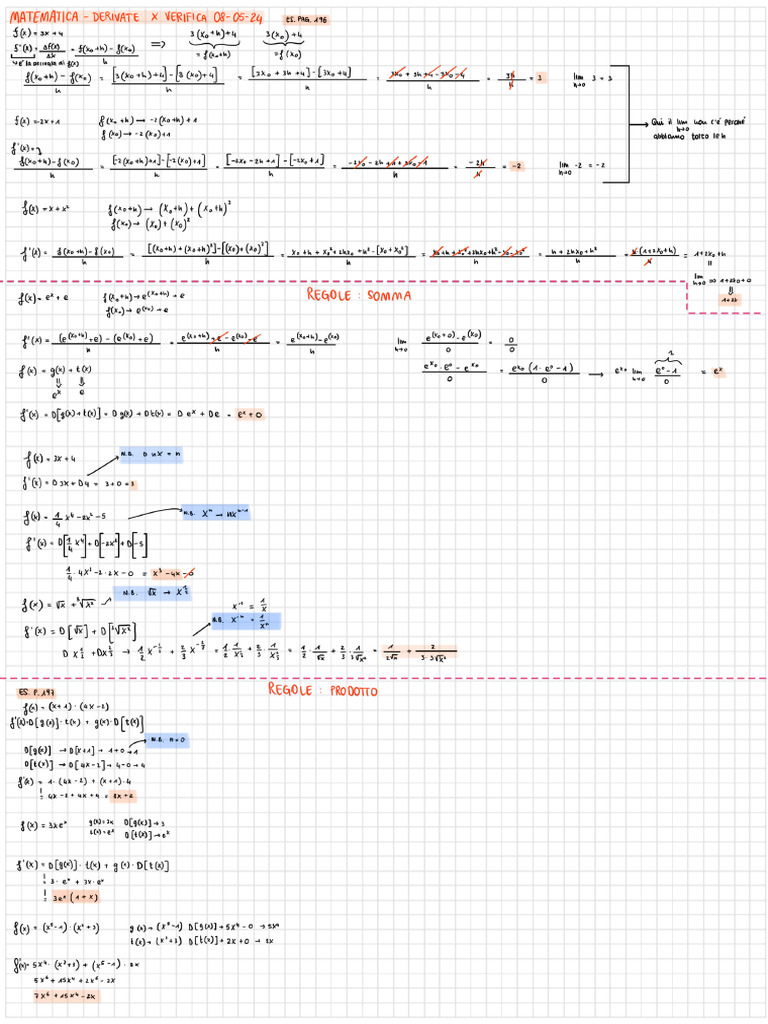 MATEMATICA - DERIVATE X VERIFICA 08-05-24 ES. PAG. 196
f(x) = 3x + 4
f'(x) = Δf(x)/Δx = f(x0+h) - f(x0) / h => 3(x0+h)+4 = f(x0+h) 3(x0)+4 = f(x0)
è la derivata di f(x)
f(x0+h) - f(x0) / h = [3(x0+h)+4]-[3(x0)+4] / h = [3x0+3h+4]-[3x0+4] / h = 3x0+3h+4-3x0-4 / h = 3h/h = 3 lim h→0 3 = 3
Qui il lim h→0 non c'è perché abbiamo tolto le h
f(x) = -2x+1 f(x0+h) → -2(x0+h)+1
f(x0) → -2(x0)+1
f'(x) =
f(x0+h)-f(x0) / h = [-2(x0+h)+1]-[-2(x0)+1] / h = [-2x0-2h+1]-[-2x0+1] / h = -2h/h = -2 lim h→0 -2 = -2
f(x) = x + x² f(x0+h) → (x0+h) + (x0+h)²
f(x0) → (x0)+(x0)²
f'(x) = f(x0+h)-f(x0) / h = [(x0+h)+(x0+h)²]-[(x0)+(x0)²] / h = x0+h+x0²+2hx0+h²-[x0+x0²] / h = = h+2hx0+h² / h = h(1+2x0+h) / h = 1+2x0+h
lim h→0 => 1+2x0+0
1+2x
REGOLE: SOMMA
f(x) = e^x + e f(x0+h) → e^(x0+h) + e
f(x0) → e^(x0) + e
f'(x) = (e^(x0+h)+e) - (e^(x0)+e) / h = e^(x0+h)+e-e^(x0)-e / h = e^(x0+h)-e^(x0) / h lim h→0 e^(x0+0)-e^(x0) / 0 = 0/0
f(x) = g(x) + t(x) e^x0 · e^0 - e^x0 / 0 = e^x0 (1·e^0-1) / 0 → e^x · lim h→0 e^0-1 / 0 = e^x
e^x e
f'(x) = D[g(x)+t(x)] = D g(x) + D t(x) = D e^x + D e = e^x + 0
f(x) = 3x + 4 N.B. D nx = n
f'(x) = D 3x + D 4 = 3+0 = 3
f(x) = 1/4 x⁴ - 2x² - 5 N.B. x^n → nx^(n-1)
f'(x) = D[1/4 x⁴] + D[-2x²] + D[-5]
1/4 · 4x³ - 2·2x - 0 = x³ - 4x - 0
f(x) = √x + ³√x² N.B. √x → x^(1/2)
x^-1 = 1/x
N.B. x^-n = 1/x^n
f'(x) = D[√x] + D[³√x²]
D x^(1/2) + D x^(2/3) → 1/2 x^(-1/2) + 2/3 x^(-1/3) = 1/2 · 1/x^(1/2) + 2/3 · 1/x^(1/3) = 1/2 · 1/√x + 2/3 · 1/³√x = 1/2√x + 2/3·³√x
REGOLE: PRODOTTO
ES. P. 197
f(x) = (x+1) · (4x-2)
f'(x) = D[g(x)] · t(x) + g(x) · D[t(x)]
N.B. n=0
D[g(x)] → D[x+1] → 1+0 → 1
D[t(x)] → D[4x-2] → 4-0 → 4
f'(x) = 1·(4x-2) + (x+1)·4
4x-2+4x+4 = 8x+2
f(x) = 3xe^x g(x) = 3x D[g(x)] → 3
t(x) = e^x D[t(x)] → e^x
f'(x) = D[g(x)] · t(x) + g(x) · D[t(x)]
3·e^x + 3x·e^x
3e^x (1+x)
f(x) = (x⁵-1) · (x²+3) g(x) → (x⁵-1) D[g(x)] → 5x⁴-0 → 5x⁴
t(x) → (x²+3) D[t(x)] → 2x+0 → 2x
f'(x) = 5x⁴·(x²+3) + (x⁵-1)·2x
5x⁶+15x⁴+2x⁶-2x
7x⁶+15x⁴-2x